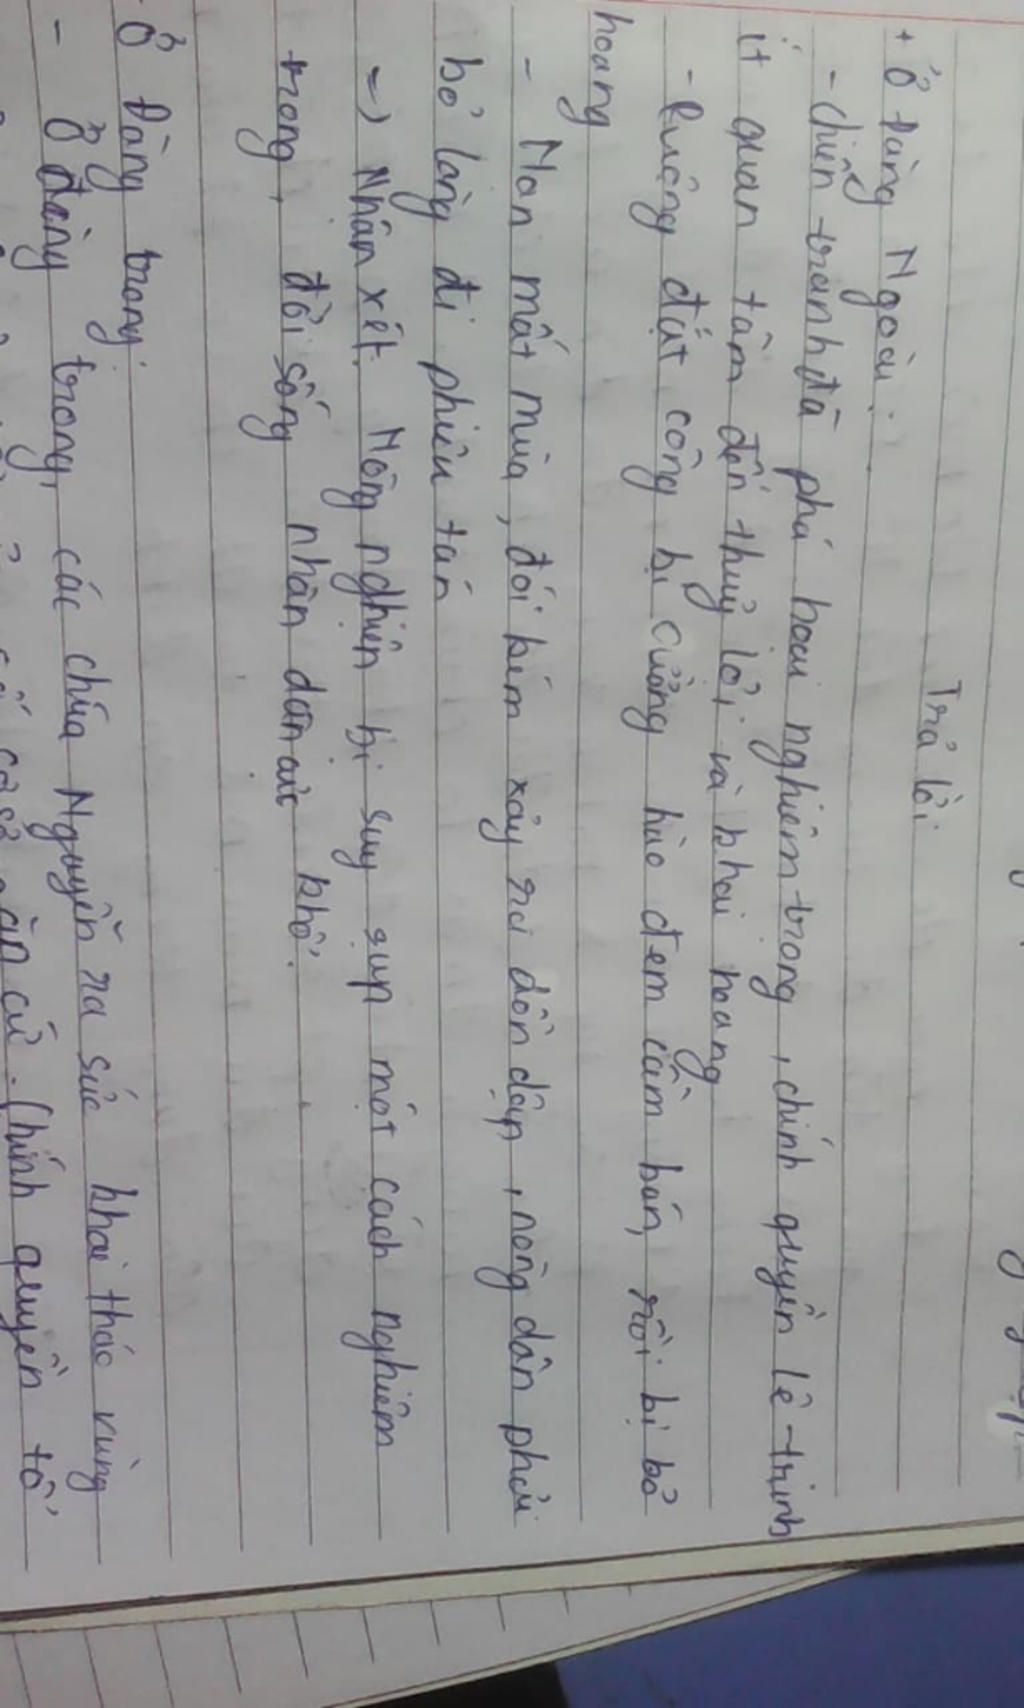 Trả lời
+ Ở Đàng Ngoài:
- Chiến tranh đã phá hoại nghiêm trọng, chính quyền Lê - Trịnh
ít quan tâm đến thuỷ lợi và khai hoang
- Ruộng đất công bị cường hào đem cầm bán, rồi bị bỏ
hoang
- Nạn mất mùa, đói kém xảy ra dồn dập, nông dân phải
bỏ làng đi phiêu tán
=> Nhận xét. Nông nghiện bị suy sụp một cách nghiêm
trọng, đời sống nhân dân cực khổ.
Ở Đàng trong:
- Ở đàng trong, các chúa Nguyễn ra sức khai thác vùng
căn cứ. Chính quyền tổ